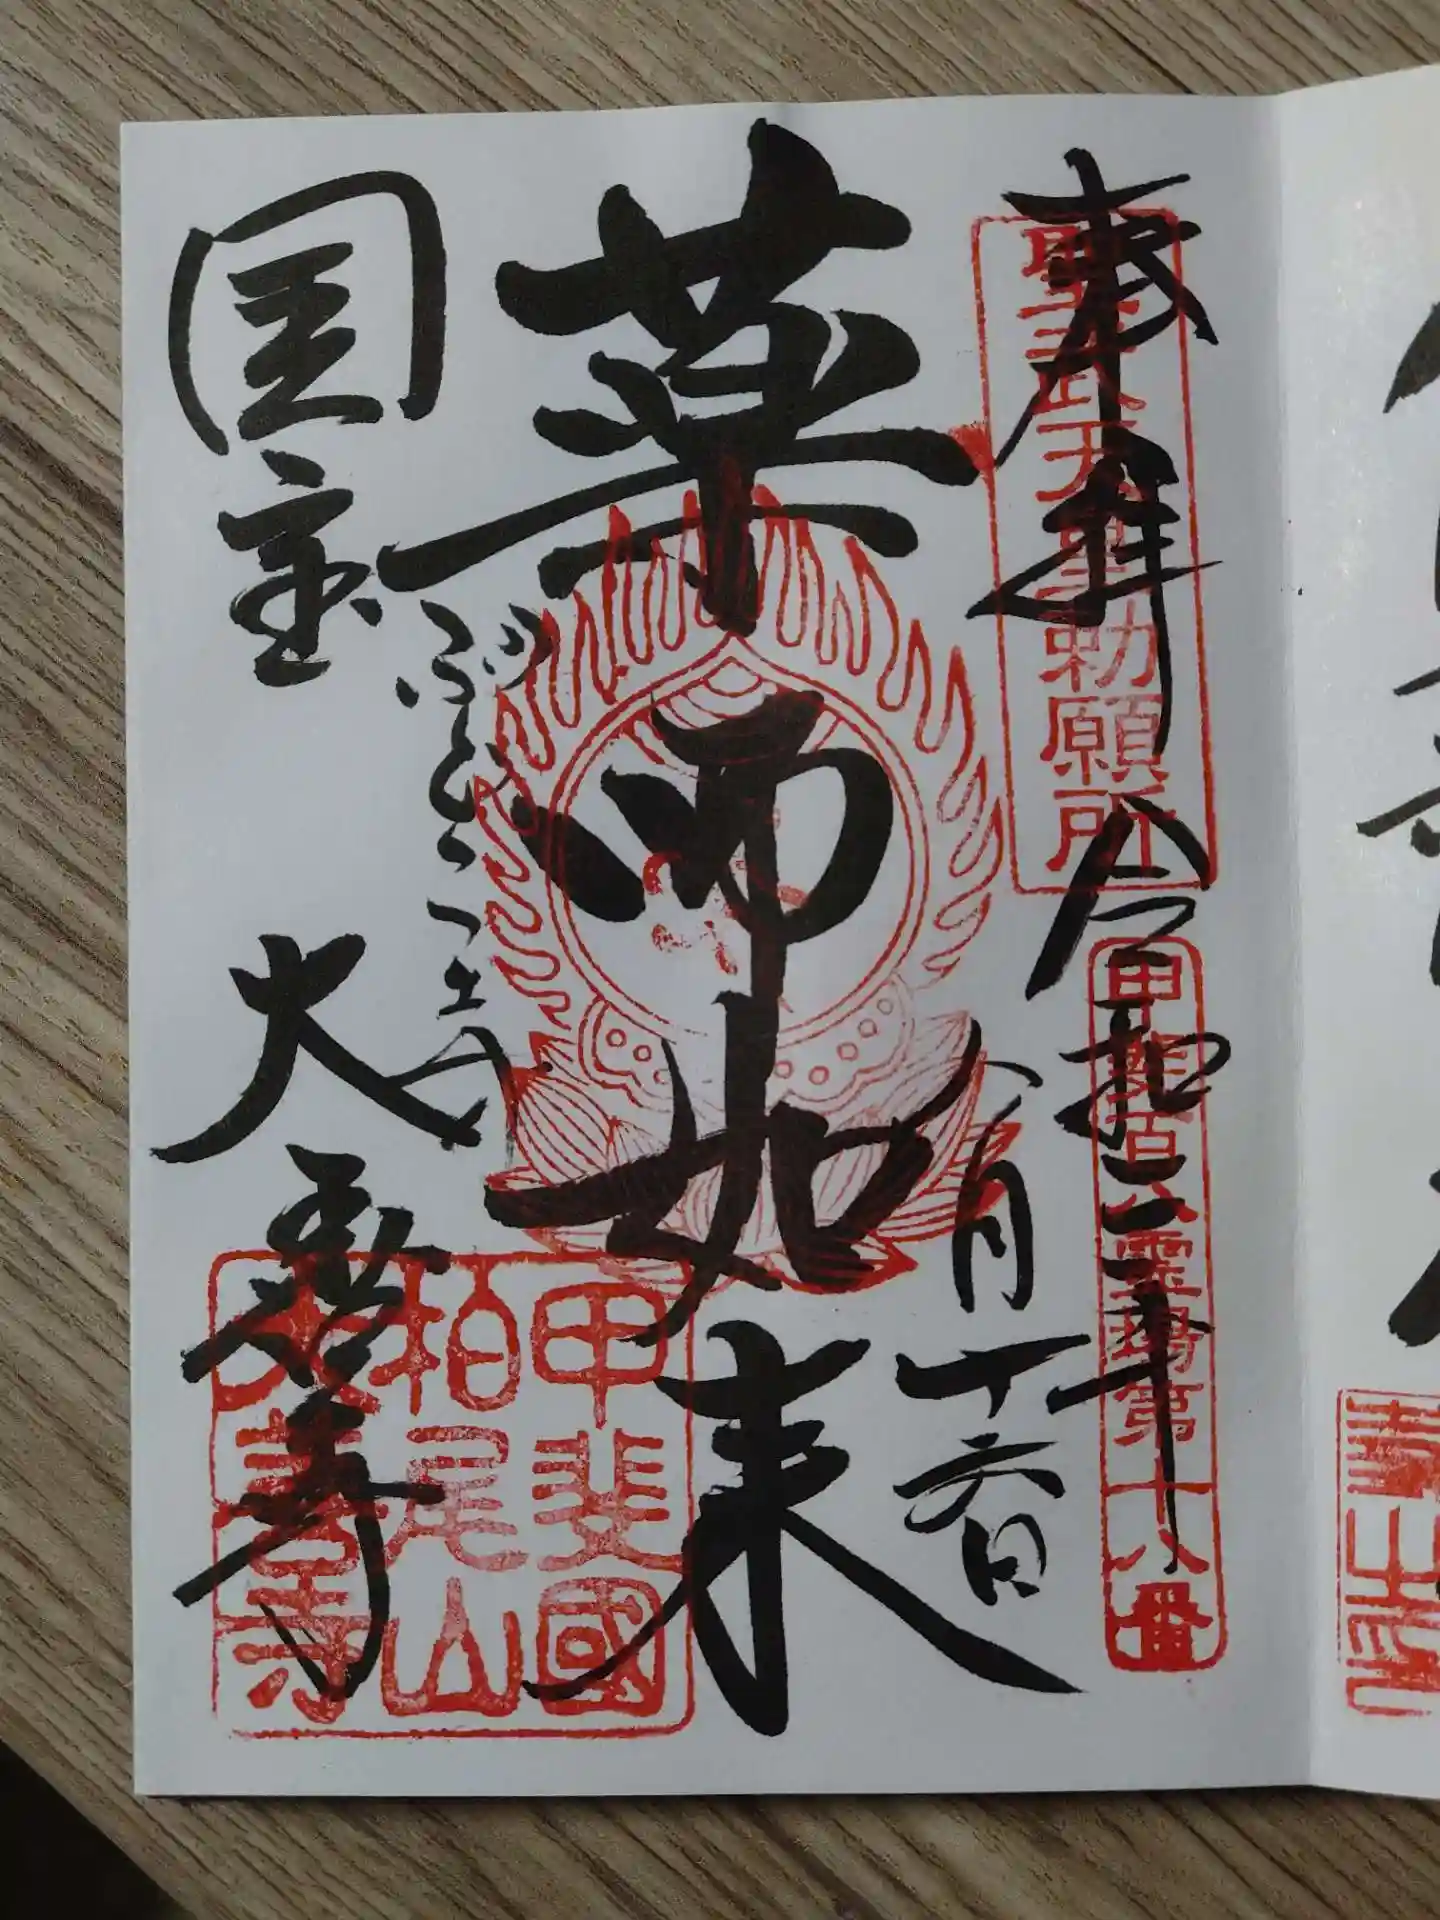 奉拝 令和三年
聖武天皇勅願所
甲斐百八霊場第十八番
八月十六日
薬師如来
ぶどう
国宝 大善寺
甲斐國
柏尾山
大善寺